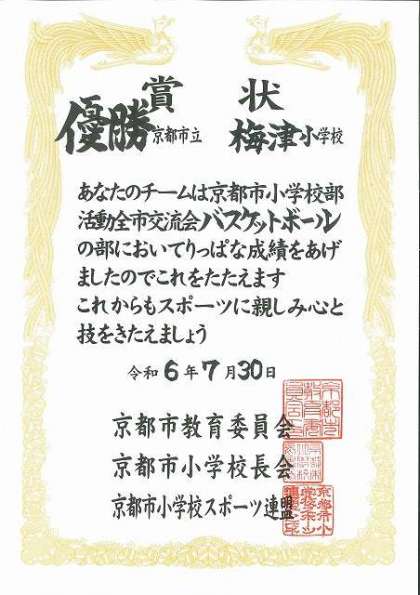 賞状
優勝 京都市立 梅津小学校
あなたのチームは京都市小学校部
活動全市交流会バスケットボール
の部においてりっぱな成績をあげ
ましたのでこれをたたえます
これからもスポーツに親しみ心と
技をきたえましょう
令和6年7月30日
京都市教育委員会
京都市小学校長会
京都市小学校スポーツ連盟